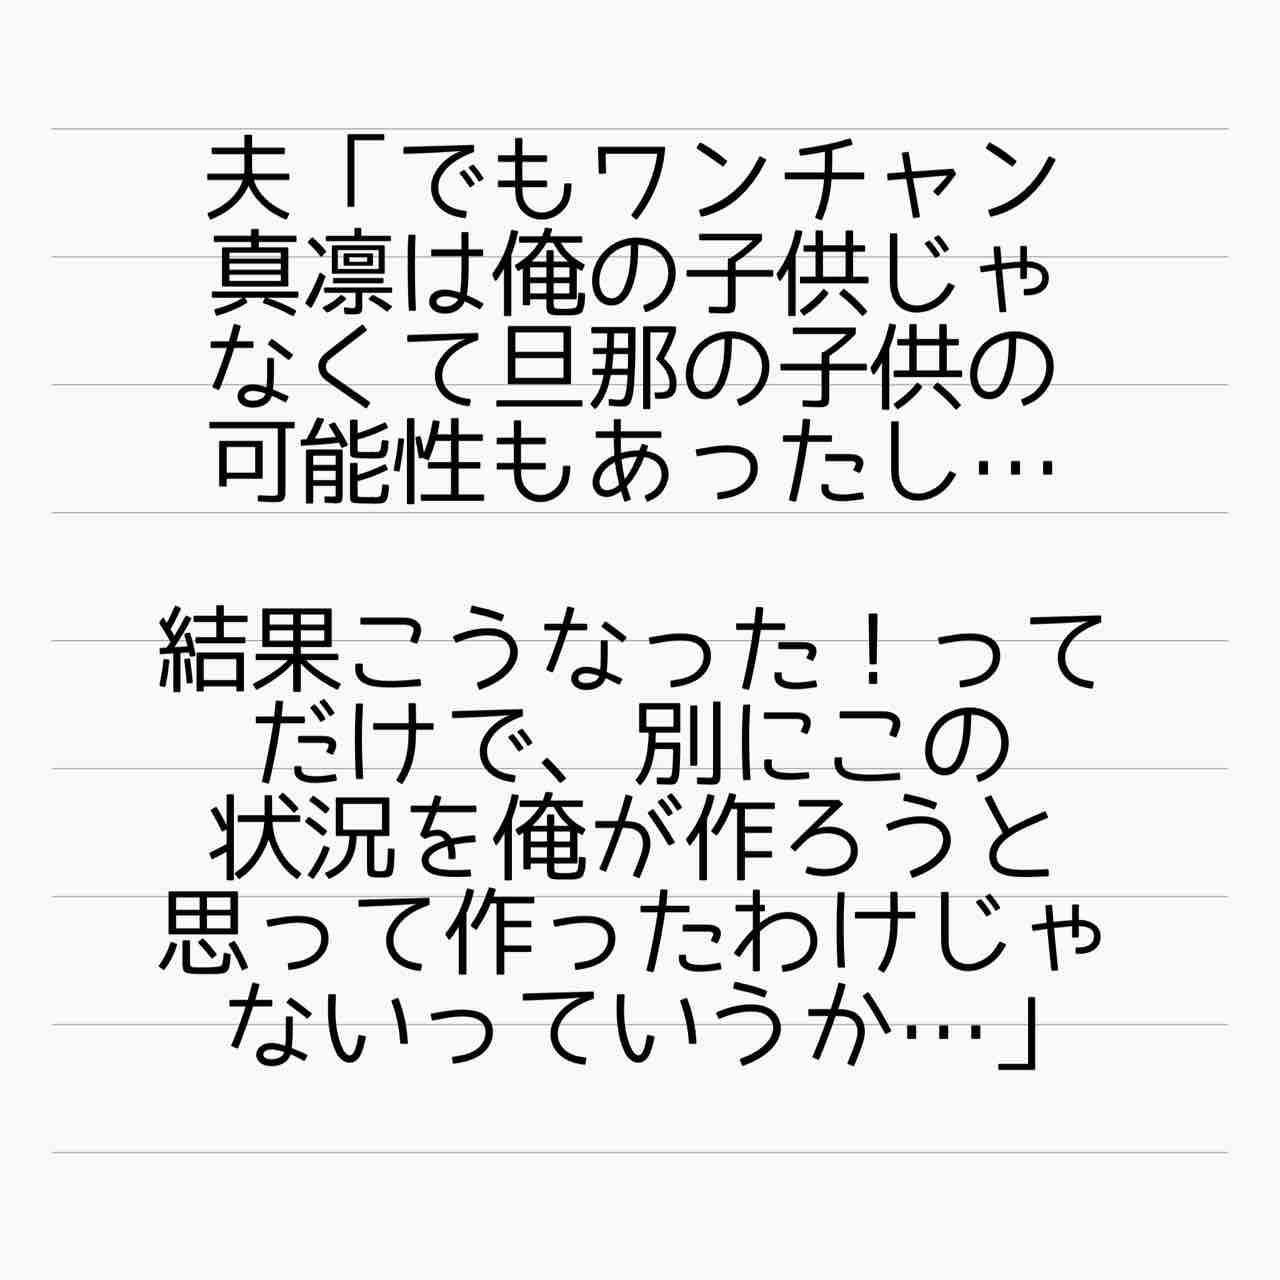 夫「でもワンチャン
真凛は俺の子供じゃ
なくて旦那の子供の
可能性もあったし…
結果こうなった！って
だけで、別にこの
状況を俺が作ろうと
思って作ったわけじゃ
ないっていうか…」